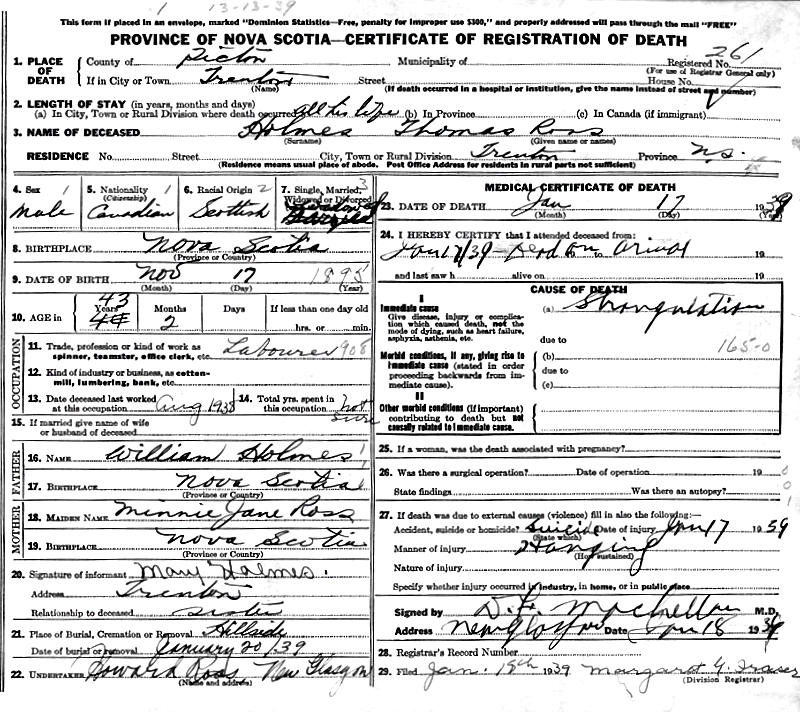 1 13-13-39
This form if placed in an envelope, marked "Dominion Statistics—Free, penalty for improper use $300," and properly addressed will pass through the mail "FREE"
PROVINCE OF NOVA SCOTIA—CERTIFICATE OF REGISTRATION OF DEATH
1. PLACE OF DEATH County of Pictou Municipality of Registered No. 261
(For use of Registrar General only)
If in City or Town Trenton Street House No.
(Name) (If death occurred in a hospital or institution, give the name instead of street and number)
2. LENGTH OF STAY (in years, months and days)
(a) In City, Town or Rural Division where death occurred all his life (b) In Province (c) In Canada (if immigrant)
3. NAME OF DECEASED Holmes Thomas Ross
(Surname) (Given name or names)
RESIDENCE No. Street City, Town or Rural Division Trenton Province N.S.
(Residence means usual place of abode. Post Office Address for residents in rural parts not sufficient)
4. Sex 1 Male
5. Nationality 1 (Citizenship) Canadian
6. Racial Origin 2 Scottish
7. Single, Married, 3 Widowed or Divorced
8. BIRTHPLACE Nova Scotia
(Province or Country)
9. DATE OF BIRTH Nov 17 1895
(Month) (Day) (Year)
10. AGE in 43 Years Months 2 Days If less than one day old
hrs. or min.
OCCUPATION
11. Trade, profession or kind of work as spinner, teamster, office clerk, etc. Labourer 908
12. Kind of industry or business, as cotton-mill, lumbering, bank, etc.
13. Date deceased last worked at this occupation Aug 1938
14. Total yrs. spent in this occupation not sure
15. If married give name of wife or husband of deceased
FATHER
16. NAME William Holmes 1
17. BIRTHPLACE Nova Scotia 1
(Province or Country)
MOTHER
18. MAIDEN NAME Minnie Jane Ross
19. BIRTHPLACE Nova Scotia
(Province or Country)
20. Signature of informant Mary Holmes.
Address Trenton
Relationship to deceased sister
21. Place of Burial, Cremation or Removal Hillside
Date of burial or removal January 20/39
22. UNDERTAKER Howard Ross, New Glasgow
(Name and address)
MEDICAL CERTIFICATE OF DEATH
23. DATE OF DEATH Jan 17 1939
(Month) (Day) (Year)
24. I HEREBY CERTIFY that I attended deceased from:
Jan 17/39 - Dead on to arival 19
and last saw h alive on 19
CAUSE OF DEATH
I
Immediate cause
Give disease, injury or complication which caused death, not the mode of dying, such as heart failure, asphyxia, asthenia, etc.
(a) Strangulation
due to 165-0
Morbid conditions, if any, giving rise to immediate cause (stated in order proceeding backwards from immediate cause).
(b)
due to
(c)
II
Other morbid conditions (if important) contributing to death but not causally related to immediate cause.
25. If a woman, was the death associated with pregnancy?
26. Was there a surgical operation? Date of operation 19 0
State findings Was there an autopsy? 0
1
27. If death was due to external causes (violence) fill in also the following:—
Accident, suicide or homicide? Suicide Date of injury Jan 17 1939
(State which)
Manner of injury Hanging
(How sustained)
Nature of injury
Specify whether injury occurred in industry, in home, or in public place
Signed by M.D.
Address New Glasgow Date Jan 18 1939
28. Registrar's Record Number
29. Filed Jan. 18th 1939 Margaret G. Fraser
(Division Registrar)